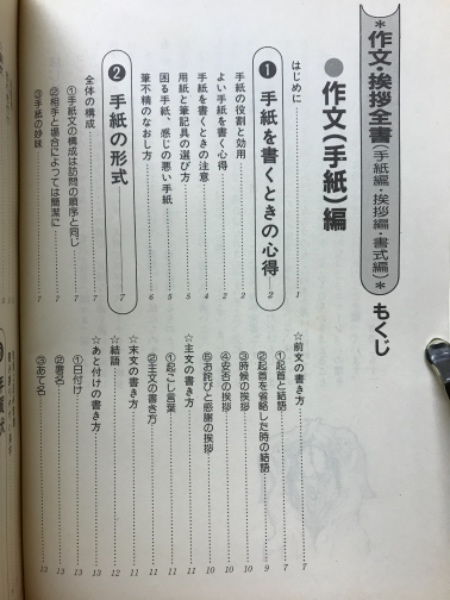 ＊作文・挨拶全書（手紙編・挨拶編・書式編）＊ もくじ
●作文（手紙）編
はじめに……1
❶ 手紙を書くときの心得……2
手紙の役割と効用……2
よい手紙を書く心得……2
手紙を書くときの注意……4
用紙と筆記具の選び方……5
困る手紙、感じの悪い手紙……5
筆不精のなおし方……6
❷ 手紙の形式……7
全体の構成……7
①手紙文の構成は訪問の順序と同じ……7
②相手と場合によっては簡潔に……7
③手紙の妙味……7
☆前文の書き方……7
①起首と結語……7
②起首を省略した時の結語……9
③時候の挨拶……10
④安否の挨拶……10
⑤お詫びと感謝の挨拶……10
☆主文の書き方……11
①起こし言葉……11
②主文の書き方……11
☆末文の書き方……11
☆結語……12
☆あと付けの書き方……13
①日付け……13
②署名……13
③あて名……13